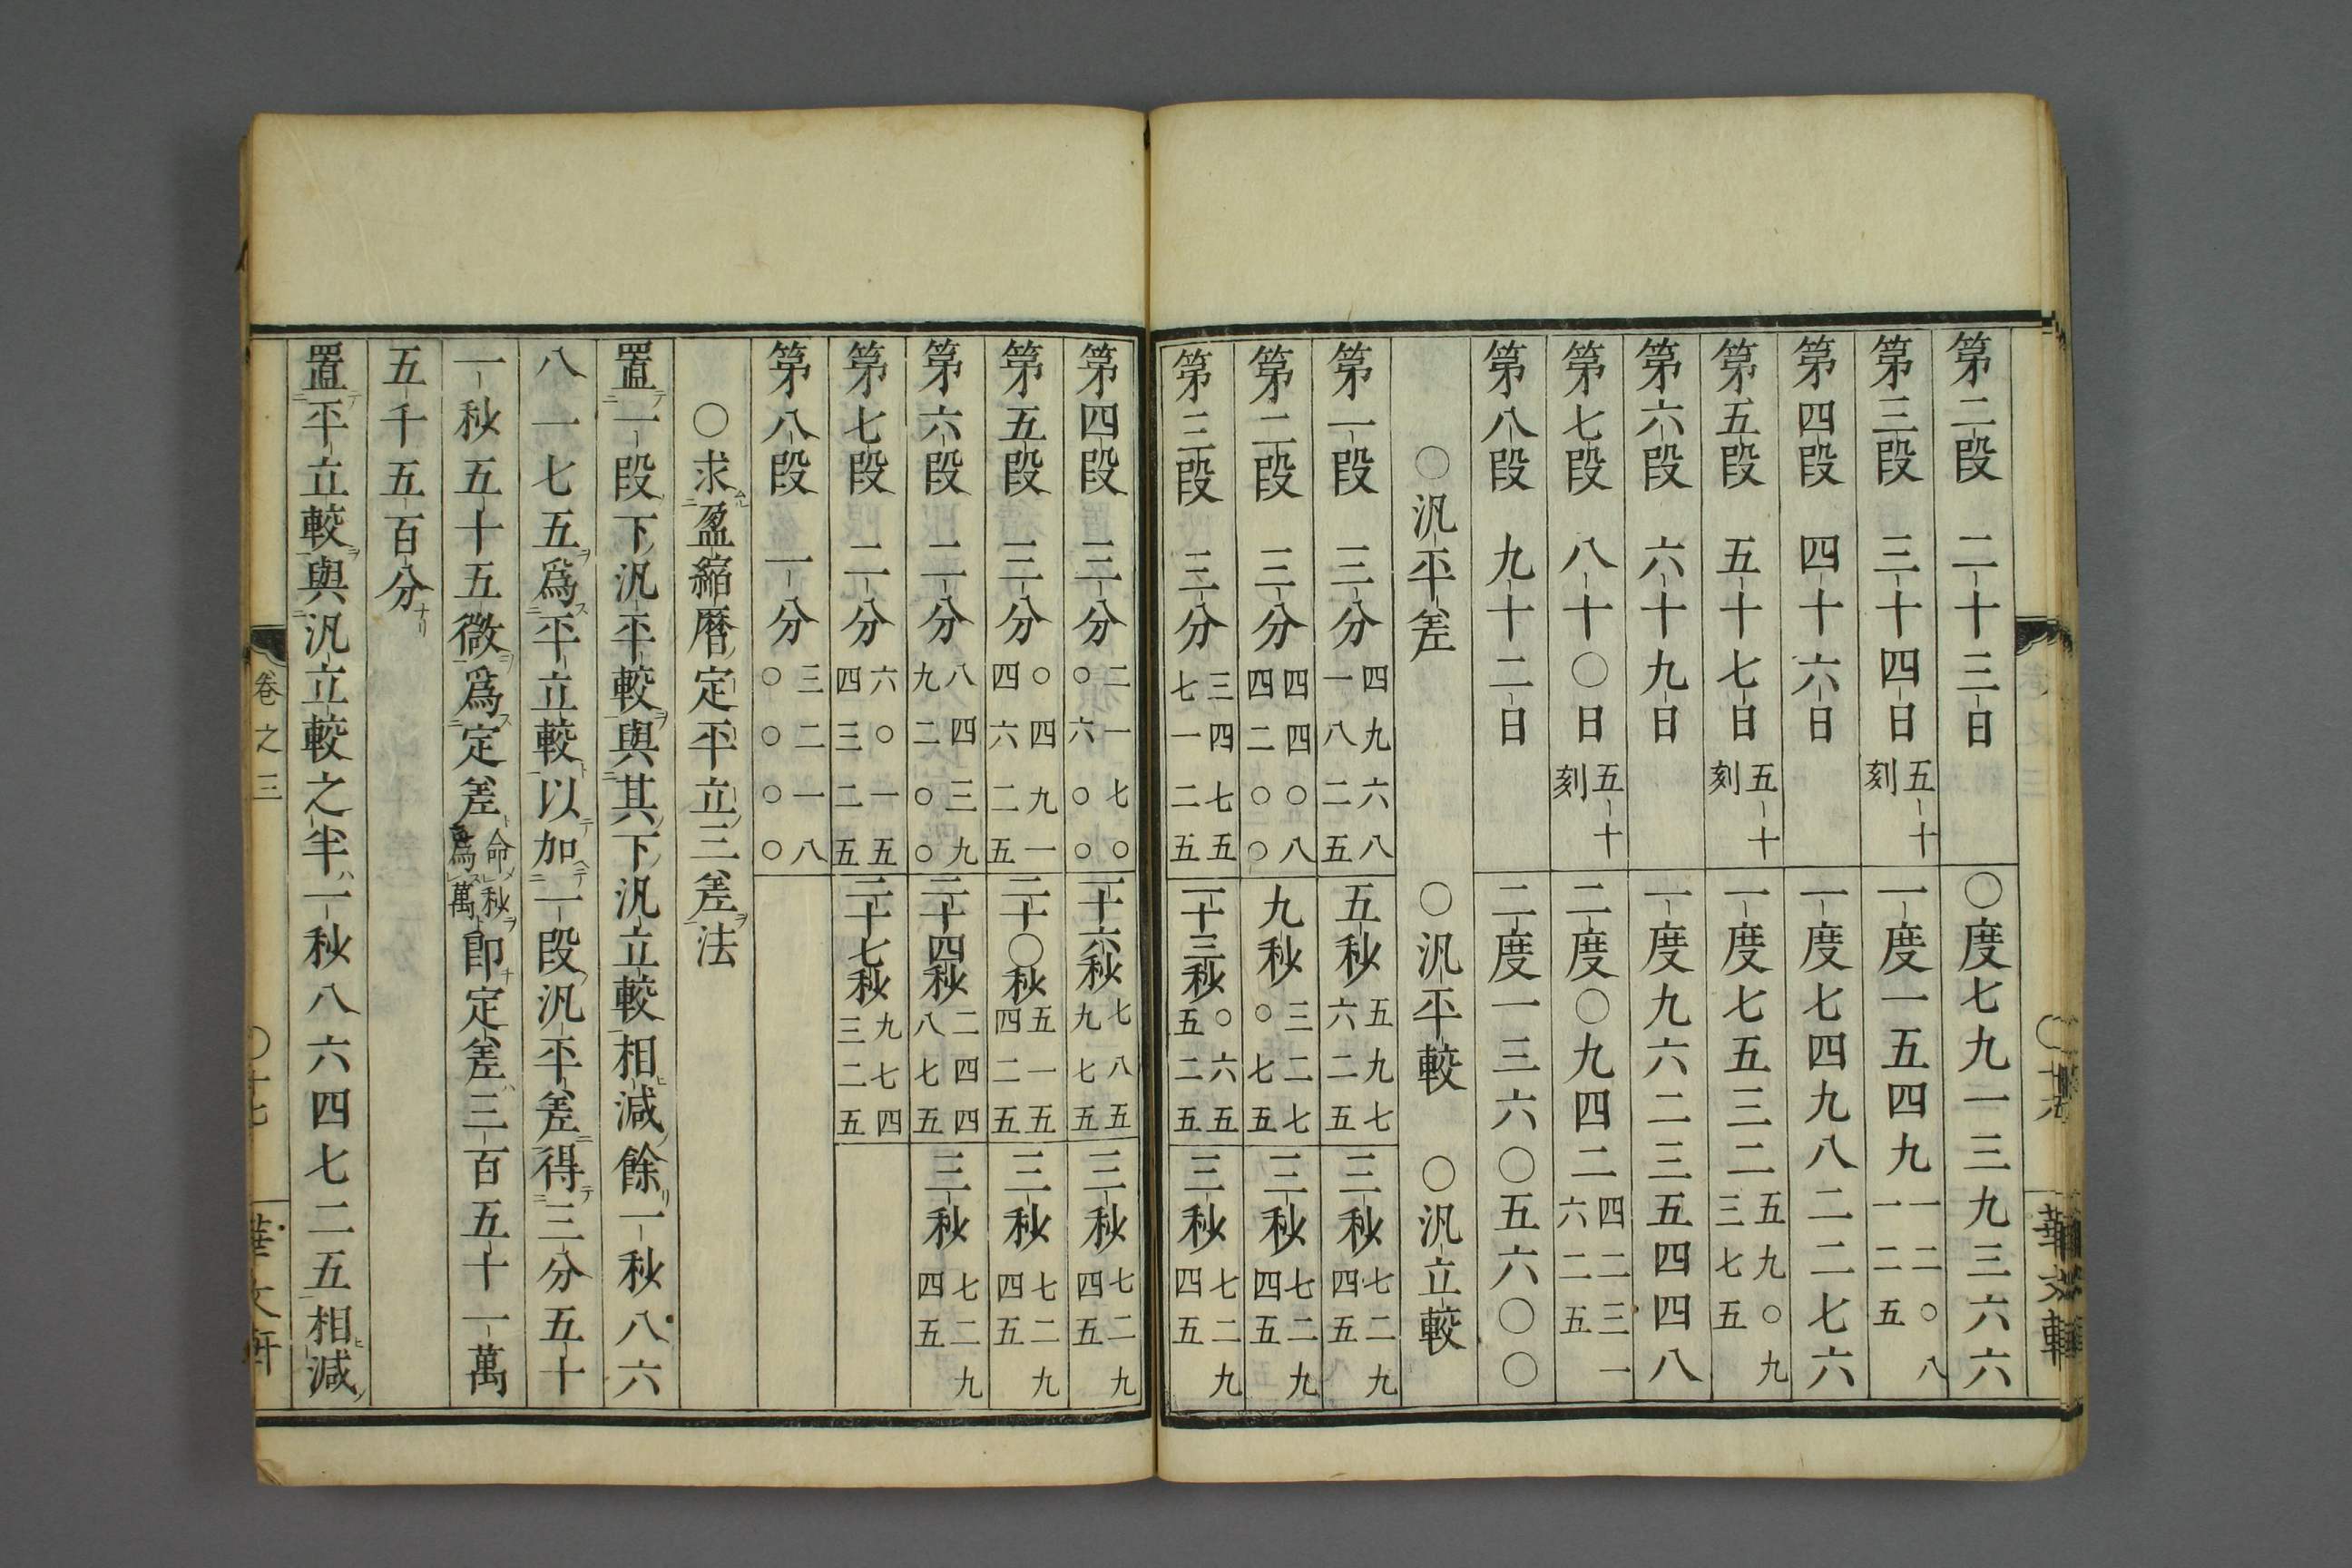 第二段 二十三日 〇度七九一三九三六六
第三段 三十四日五十刻 一度一五四九一二〇八一二五
第四段 四十六日 一度七四九八二二七六
第五段 五十七日五十刻 一度七五三二五九〇九三七五
第六段 六十九日 一度九六二三五四四八
第七段 八十〇日五十刻 二度〇九四二四二三一六二五
第八段 九十二日 二度一三六〇五六〇〇
〇汎平差 〇汎平較 〇汎立較
第一段 三分四九六八一八二五 五秒五九七六二五 三秒七二九四五
第二段 三分四四〇八四二〇〇 九秒三二七〇七五 三秒七二九四五
第三段 三分三四七五七一二五 一十三秒〇六五五二五 三秒七二九四五
第四段 三分二一七〇〇六〇〇 一十六秒七八五九七五 三秒七二九四五
第五段 三分〇四九一四六二五 二十〇秒五一五四二五 三秒七二九四五
第六段 二分八四三九九二〇〇 二十四秒二四四八七五 三秒七二九四五
第七段 二分六〇一五四三二五 二十七秒九七四三二五
第八段 一分三二一八〇〇〇〇
〇求盈縮曆定平立三差法
置一段下汎平較與其下汎立較相減餘一秒八六
八一七五爲平立較以加一段汎平差得三分五十
一秒五十五微爲定差命秒爲萬即定差三百五十一萬
五千五百分
置平立較與汎立較之半一秒八六四七二五相減
卷之三 〇十七 華文軒